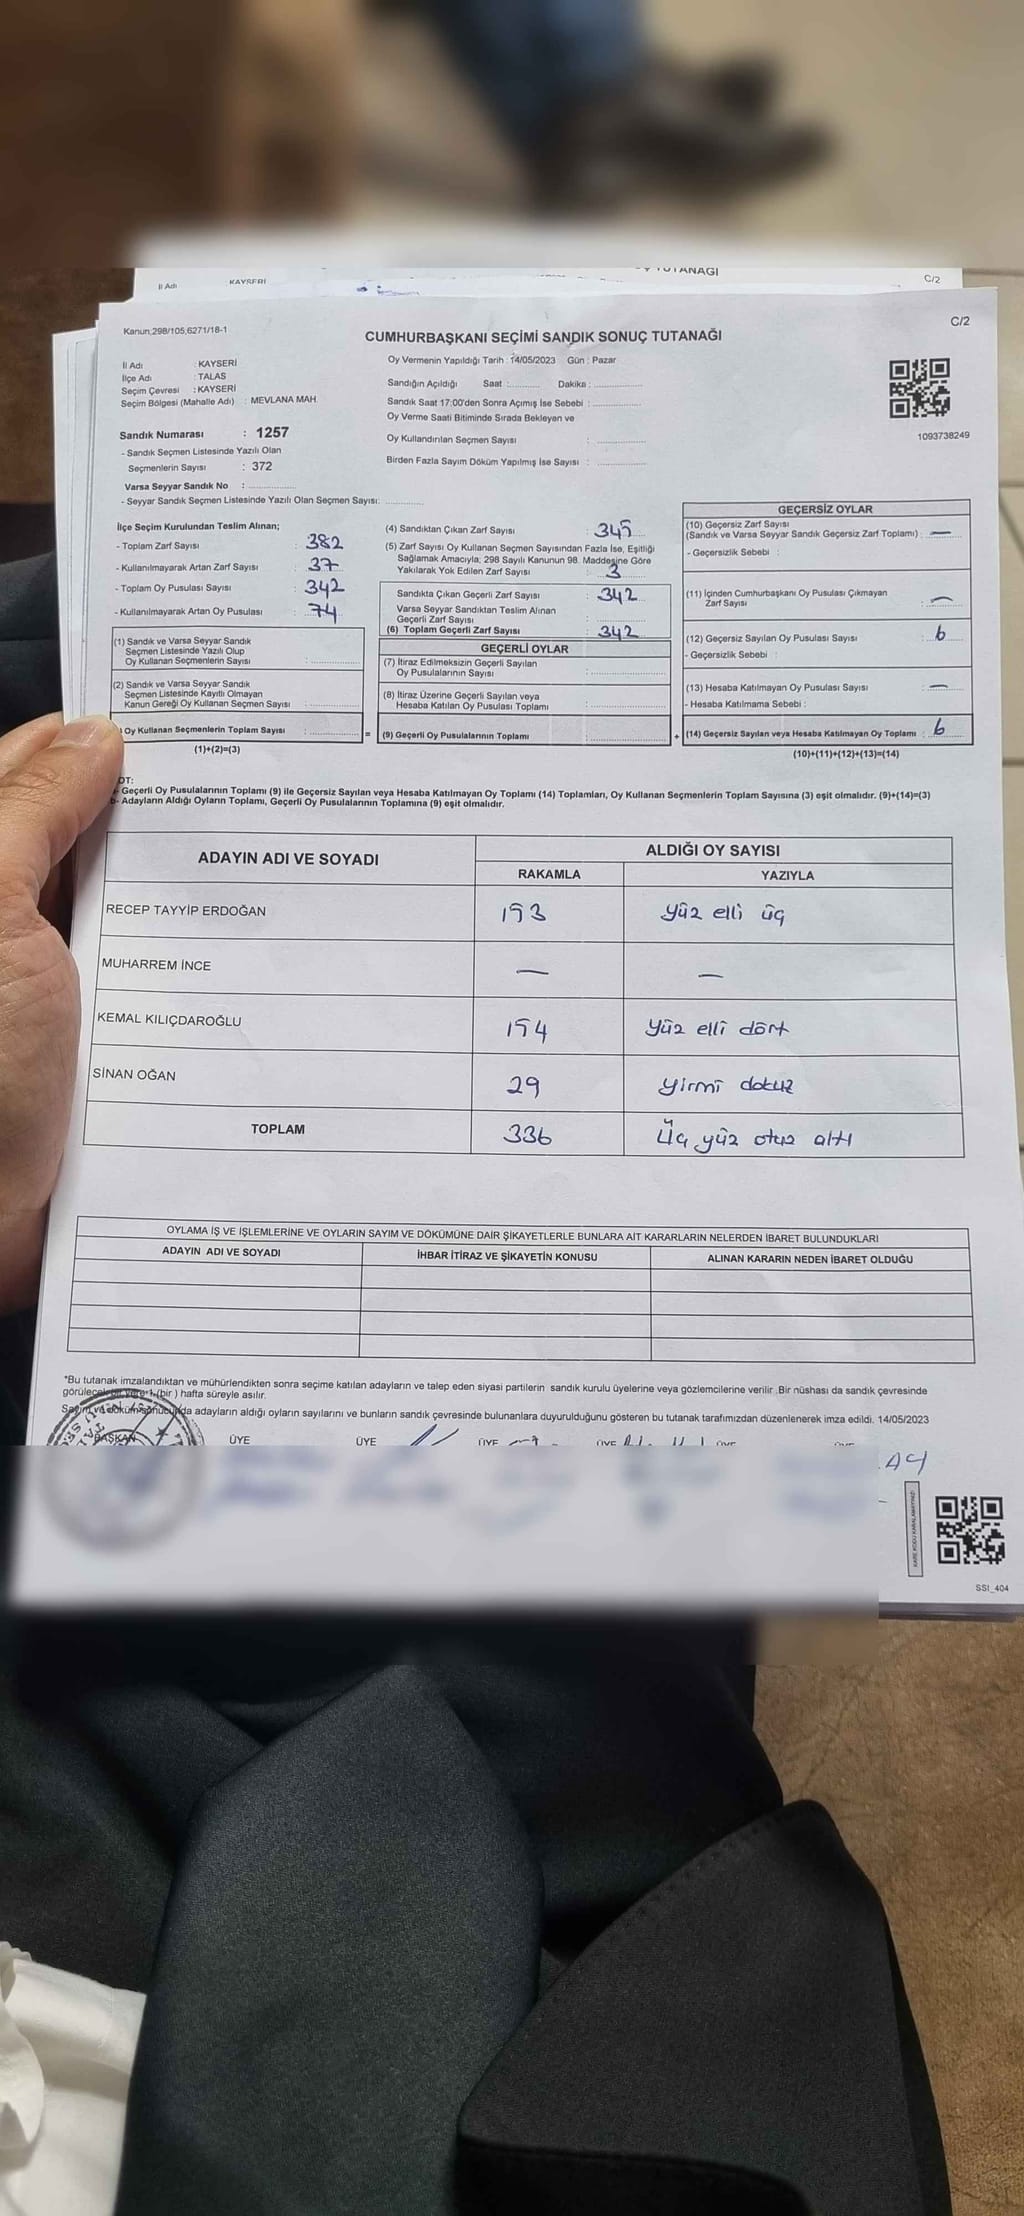 TUTANAĞI
İl Adı KAYSERİ C/2
Kanun;298/105,6271/18-1
C/2
CUMHURBAŞKANI SEÇİMİ SANDIK SONUÇ TUTANAĞI
İl Adı : KAYSERİ
İlçe Adı : TALAS
Seçim Çevresi : KAYSERİ
Seçim Bölgesi (Mahalle Adı) : MEVLANA MAH.
Sandık Numarası : 1257
- Sandık Seçmen Listesinde Yazılı Olan
Seçmenlerin Sayısı : 372
Varsa Seyyar Sandık No :
- Seyyar Sandık Seçmen Listesinde Yazılı Olan Seçmen Sayısı:
Oy Vermenin Yapıldığı Tarih : 14/05/2023 Gün : Pazar
Sandığın Açıldığı Saat : Dakika :
Sandık Saat 17:00'den Sonra Açımış İse Sebebi :
Oy Verme Saati Bitiminde Sırada Bekleyen ve
Oy Kullandırılan Seçmen Sayısı :
Birden Fazla Sayım Döküm Yapılmış İse Sayısı :
1093738249
İlçe Seçim Kurulundan Teslim Alınan;
- Toplam Zarf Sayısı : 382
- Kullanılmayarak Artan Zarf Sayısı : 37
- Toplam Oy Pusulası Sayısı : 342
- Kullanılmayarak Artan Oy Pusulası : 74
(1) Sandık ve Varsa Seyyar Sandık
Seçmen Listesinde Yazılı Olup
Oy Kullanan Seçmenlerin Sayısı :
(2) Sandık ve Varsa Seyyar Sandık
Seçmen Listesinde Kayıtlı Olmayan
Kanun Gereği Oy Kullanan Seçmen Sayısı :
Oy Kullanan Seçmenlerin Toplam Sayısı : =
(1)+(2)=(3)
(4) Sandıktan Çıkan Zarf Sayısı : 345
(5) Zarf Sayısı Oy Kullanan Seçmen Sayısından Fazla İse, Eşitliği
Sağlamak Amacıyla; 298 Sayılı Kanunun 98. Maddesine Göre
Yakılarak Yok Edilen Zarf Sayısı : 3
Sandıkta Çıkan Geçerli Zarf Sayısı : 342
Varsa Seyyar Sandıktan Teslim Alınan
Geçerli Zarf Sayısı :
(6) Toplam Geçerli Zarf Sayısı : 342
GEÇERLİ OYLAR
(7) İtiraz Edilmeksizin Geçerli Sayılan
Oy Pusulalarının Sayısı :
(8) İtiraz Üzerine Geçerli Sayılan veya
Hesaba Katılan Oy Pusulası Toplamı :
(9) Geçerli Oy Pusulalarının Toplamı : +
GEÇERSİZ OYLAR
(10) Geçersiz Zarf Sayısı
(Sandık ve Varsa Seyyar Sandık Geçersiz Zarf Toplamı) : —
- Geçersizlik Sebebi :
(11) İçinden Cumhurbaşkanı Oy Pusulası Çıkmayan
Zarf Sayısı : —
(12) Geçersiz Sayılan Oy Pusulası Sayısı : 6
- Geçersizlik Sebebi :
(13) Hesaba Katılmayan Oy Pusulası Sayısı : —
- Hesaba Katılmama Sebebi :
(14) Geçersiz Sayılan veya Hesaba Katılmayan Oy Toplamı : 6
(10)+(11)+(12)+(13)=(14)
OT:
Geçerli Oy Pusulalarının Toplamı (9) ile Geçersiz Sayılan veya Hesaba Katılmayan Oy Toplamı (14) Toplamları, Oy Kullanan Seçmenlerin Toplam Sayısına (3) eşit olmalıdır. (9)+(14)=(3)
b- Adayların Aldığı Oyların Toplamı, Geçerli Oy Pusulalarının Toplamına (9) eşit olmalıdır.
ADAYIN ADI VE SOYADI ALDIĞI OY SAYISI
RAKAMLA YAZIYLA
RECEP TAYYİP ERDOĞAN 153 yüz elli üç
MUHARREM İNCE — —
KEMAL KILIÇDAROĞLU 154 yüz elli dört
SİNAN OĞAN 29 yirmi dokuz
TOPLAM 336 Üç yüz otuz altı
OYLAMA İŞ VE İŞLEMLERİNE VE OYLARIN SAYIM VE DÖKÜMÜNE DAİR ŞİKAYETLERLE BUNLARA AİT KARARLARIN NELERDEN İBARET BULUNDUKLARI
ADAYIN ADI VE SOYADI İHBAR İTİRAZ VE ŞİKAYETİN KONUSU ALINAN KARARIN NEDEN İBARET OLDUĞU
*Bu tutanak imzalandıktan ve mühürlendikten sonra seçime katılan adayların ve talep eden siyasi partilerin sandık kurulu üyelerine veya gözlemcilerine verilir .Bir nüshası da sandık çevresinde
görülecek bir yere 1 (bir ) hafta süreyle asılır.
Sayım ve döküm sonucunda adayların aldığı oyların sayılarını ve bunların sandık çevresinde bulunanlara duyurulduğunu gösteren bu tutanak tarafımızdan düzenlenerek imza edildi. 14/05/2023
BAŞKAN ÜYE ÜYE ÜYE ÜYE ÜYE
SSI_404